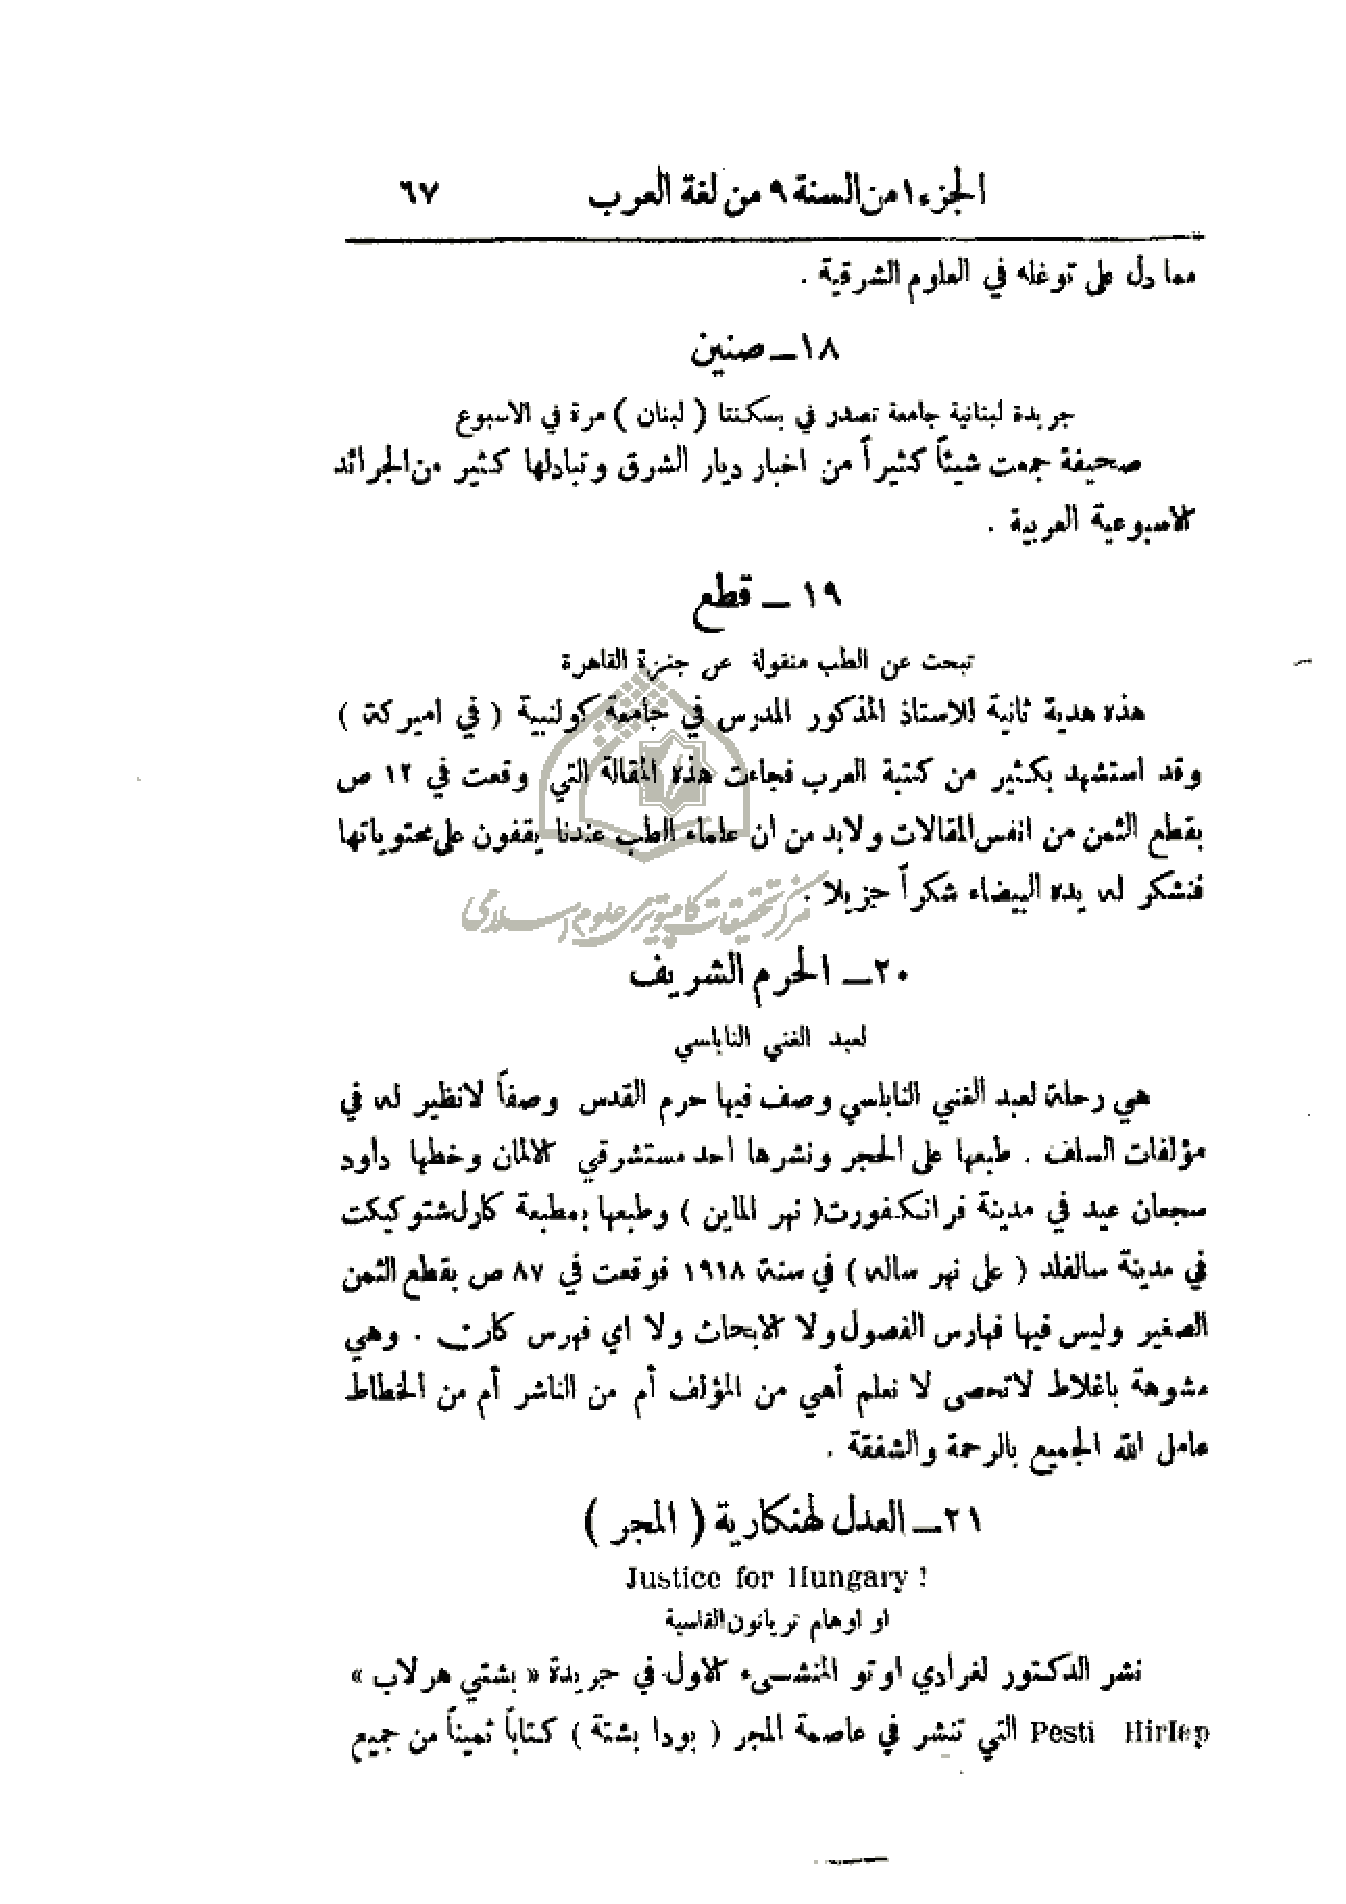 الجزء ١ من السنة ٩ من لغة العرب ٦٧
مما دل على توغله في العلوم الشرقية .
١٨ ــ صنين
جريدة لبنانية جامعة تصدر في بسكنتا ( لبنان ) مرة في الاسبوع
صحيفة جمعت شيئاً كثيراً من اخبار ديار الشرق وتبادلها كثير من الجرائد
الاسبوعية العربية .
١٩ ــ قطع
تبحث عن الطب منقولة عن جنزة القاهرة
هذه هدية ثانية للاستاذ المذكور المدرس في جامعة كولنبية ( في اميركة )
وقد استشهد بكثير من كتبة العرب فجاءت هذه المقالة التي وقعت في ١٢ ص
بقطع الثمن من انفس المقالات ولابد من ان علماء الطب عندنا يقفون على محتوياتها
فنشكر له يده البيضاء شكراً جزيلا .
مركز تحقيقات كامپيوتری علوم اسلامی
٢٠ ــ الحرم الشريف
لعبد الغني النابلسي
هي رحلة لعبد الغني النابلسي وصف فيها حرم القدس وصفاً لانظير له في
مؤلفات السلف . طبعها على الحجر ونشرها احد مستشرقي الالمان وخطها داود
سجعان عيد في مدينة فرانكفورت ( نهر الماين ) وطبعها بمطبعة كارل شتوكيكت
في مدينة سالفلد ( على نهر ساله ) في سنة ١٩١٨ فوقعت في ٨٧ ص بقطع الثمن
الصغير وليس فيها فهارس الفصول ولا الابحاث ولا اي فهرس كان . وهي
مشوهة باغلاط لاتحصى لا نعلم أهي من المؤلف أم من الناشر أم من الخطاط
عامل الله الجميع بالرحمة والشفقة .
٢١ ــ العدل لهنكارية ( المجر )
Justice for Hungary !
او اوهام تريانون القاسية
نشر الدكتور لغرادي اوتو المنشىء الاول في جريدة « بشتي هرلاب »
Pesti Hirlep التي تنشر في عاصمة المجر ( بودا بشتة ) كتاباً ثميناً من جميع